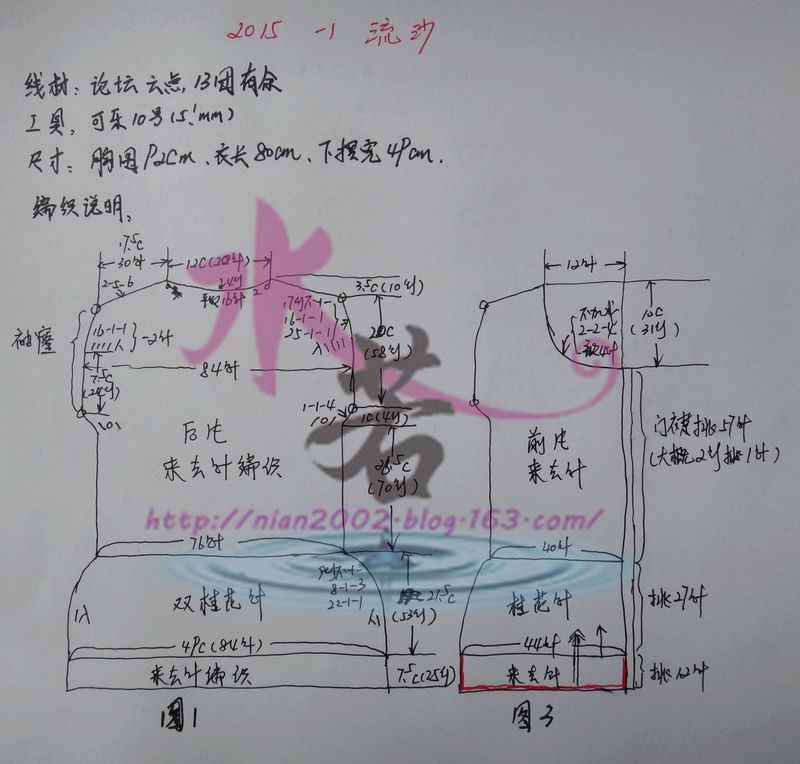 2015 -1 流沙
线材：论坛云点，13团有余
工具，可乐10号(5.1mm)
尺寸：胸围92cm、衣长80cm、下摆宽49cm.
编织说明，
17.5c
30针
12c(20针)
2-5-6
平收16针
2
3.5c(10行)
16-1-1
-2针
7.5c
(24行)
16-1-1
25-1-1
20c
(58行)
84针
1-1-4
1c(4行)
后片
来去针编织
26.5c
(70行)
76针
双桂花针
8-1-3
22-1-1
21.5c
(53行)
49c(84针)
来去针编织
7.5c(25行)
图1
12针
10c
(31行)
不加减
2-2-4
前片
来去针
门衣襟挑57针
(大概2行挑1针)
40针
桂花针
挑27针
44针
来去针
挑12针
图3
水若
http://nian2002.blog.163.com/